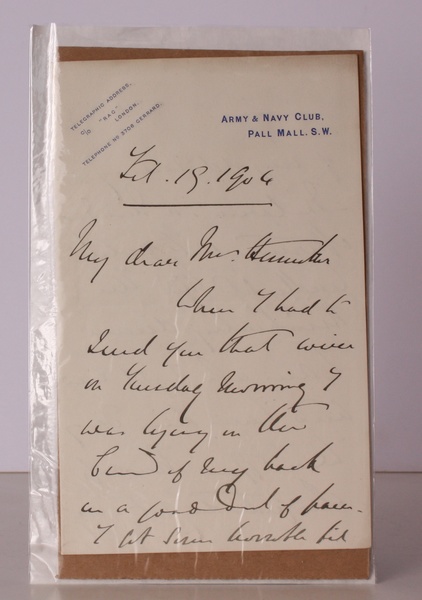 TELEGRAPHIC ADDRESS,
C/O "RAG",
LONDON.
TELEPHONE Nº 3708 GERRARD.
ARMY & NAVY CLUB,
PALL MALL. S.W.
Feb. 19. 1906
My dear Mrs.
When I had to
send you that wire
on Tuesday morning I
was lying on the
of my back
in a good deal of pain.
I got some horrible